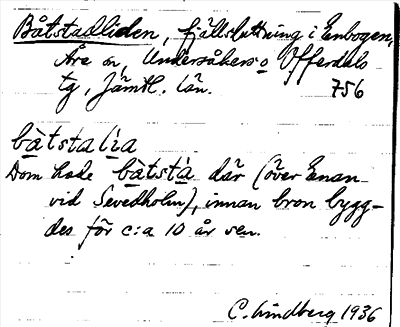 Båtstadliden, fjällsluttning i Enbogen,
Åre sn, Undersåkers o Offerdals
tg, Jämtl. län. 756
bàtstalìa
Dom hade bàtstà där (över Enan
vid Sevedholm), innan bron bygg-
des för c:a 10 år sen.
C. Lindberg 1936